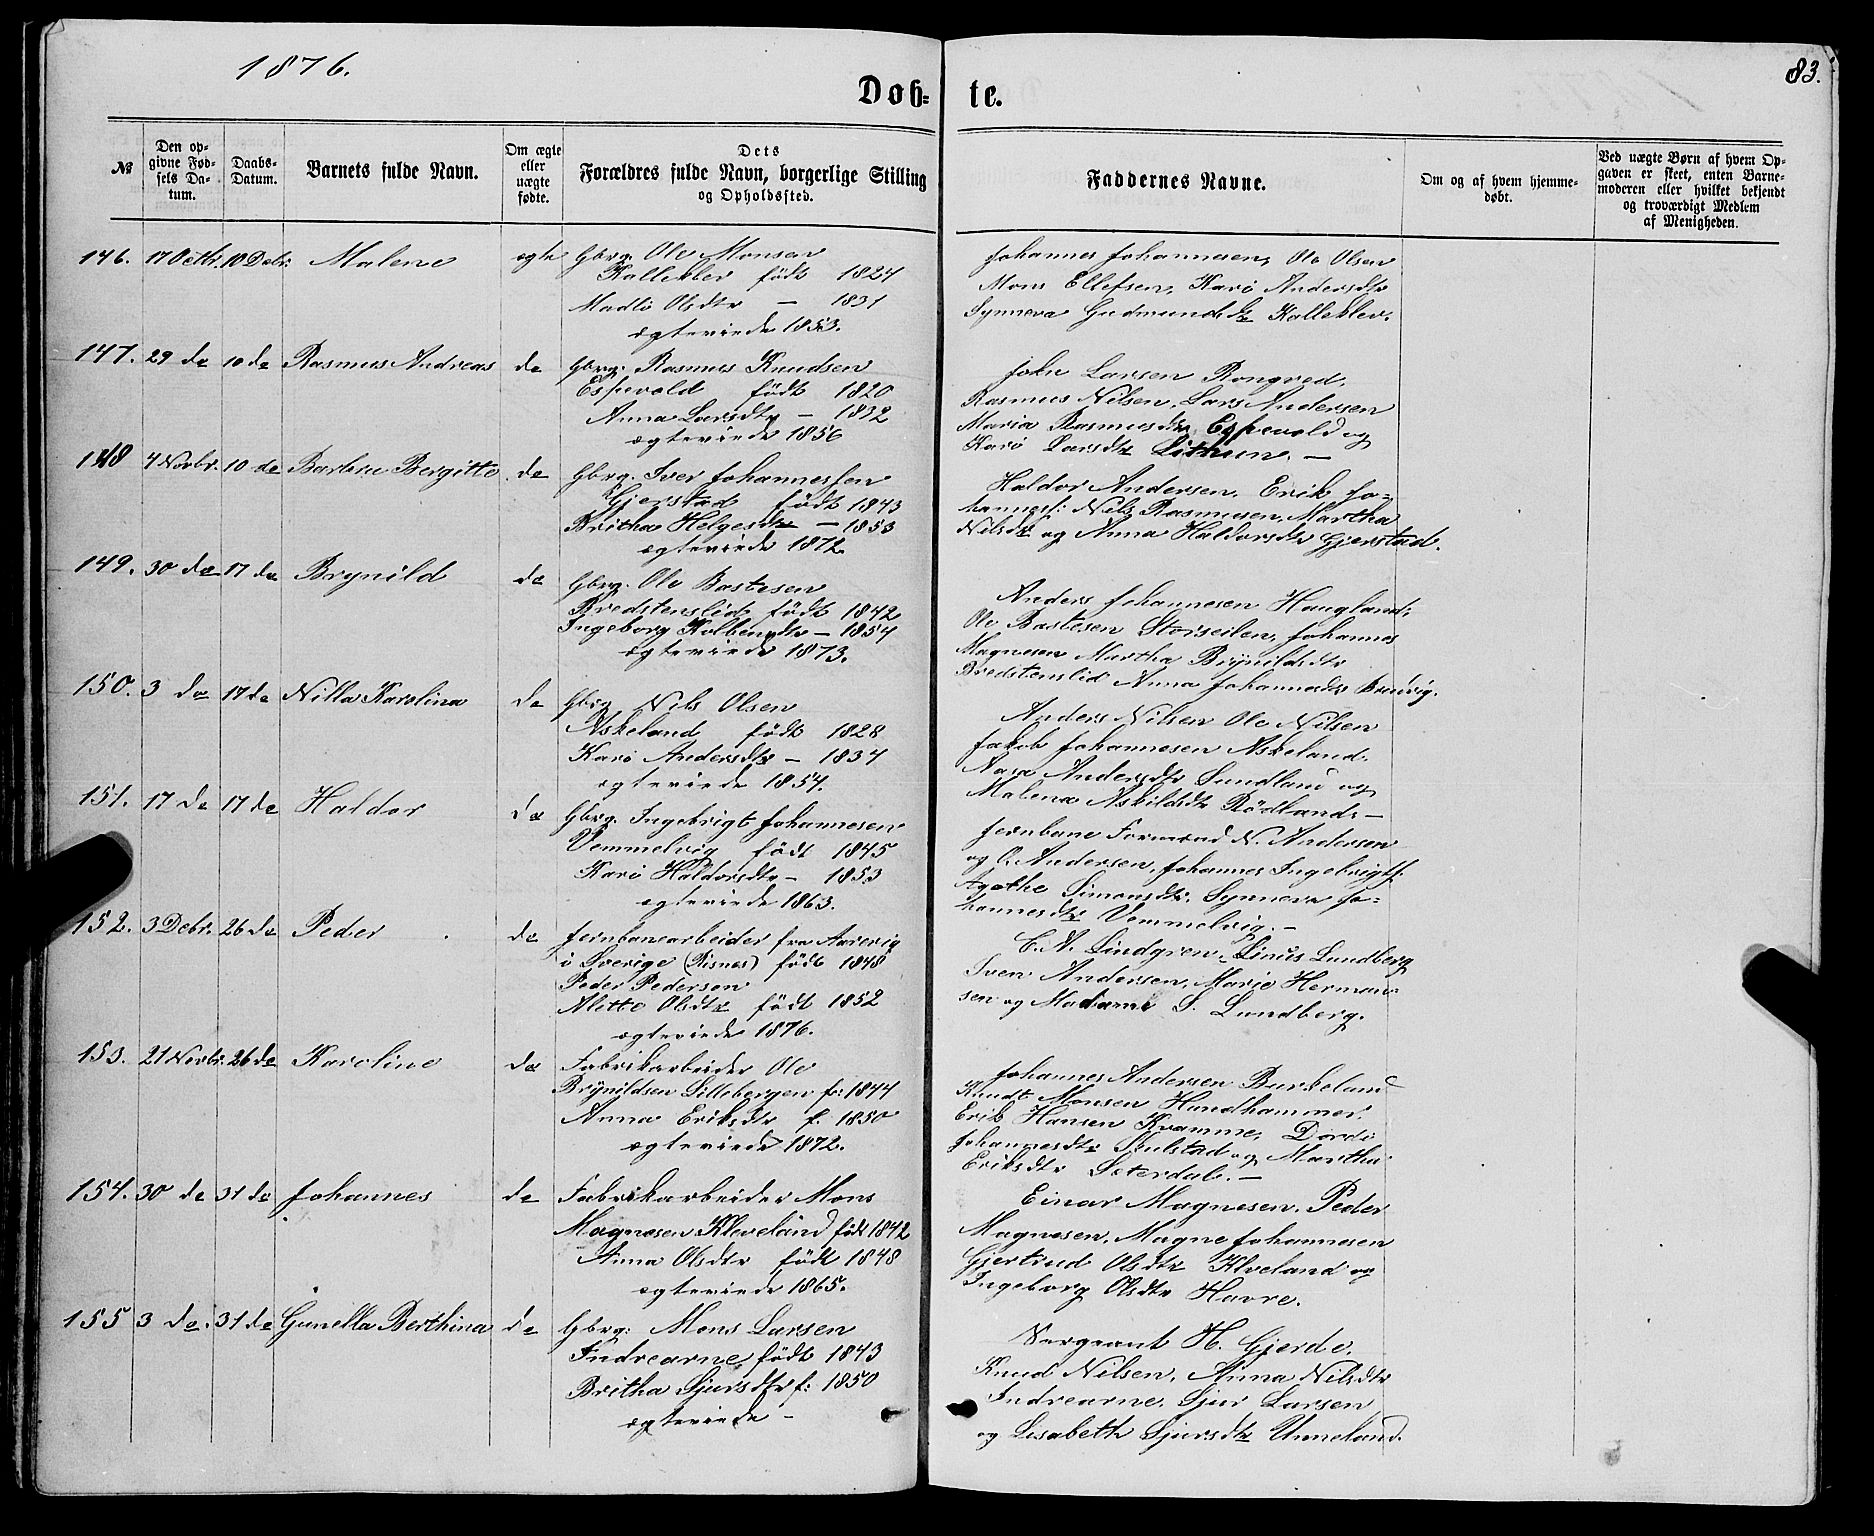 1876.
83.
Døb= te.
№
Den op-
givne Fød-
sels Da-
tum.
Daabs-
Datum.
Barnets fulde Navn.
Om ægte
eller
uægte
fødte.
Dets
Forældres fulde Navn, borgerlige Stilling
og Opholdssted.
Faddernes Navne.
Om og af hvem hjemme-
døbt.
Ved uægte Børn af hvem Op-
gaven er skeet, enten Barne-
moderen eller hvilket bekjendt
og troværdigt Medlem
af Menigheden.
146. 17 Octbr. 10 Debr. Malene ægte Gbrg. Ole Monsen
Kalleklev født 1824
Madli Olsdtr — 1831
ægteviede 1853.
Johannes Johannesen, Ole Olsen
Mons Ellefsen, Kari Andersdtr
Synneva Gudmundsdtr Kalleklev.
147. 29 do 10 do Rasmus Andreas do Gbrg. Rasmus Knudsen
Espevold født 1820
Anna Larsdtr — 1832
ægteviede 1856
John Larsen Rongved,
Rasmus Nilsen, Lars Andersen
Maria Rasmusdtr Espevold og
Kari Larsdtr Lithun. —
148 4 Novbr. 10 do Barbra Bergitte do Gbrg. Iver Johannessen
Gjerstad født 1843
Britha Helgesdtr — 1853
ægteviede 1872.
Haldor Andersen, Erik Jo-
hannesf: Nils Rasmusen, Martha
Nilsdtr og Anna Haldorsdtr Gjerstad.
149. 30 do 17 do Brynild do Gbrg. Ole Bastesen
Bredstenslid født 1842
Ingeborg Kolbensdtr — 1854
ægteviede 1873.
Anders Johannesen Haugland,
Ole Bastesen Storseilen, Johannes
Magnesen Martha Brynildsdtr
Bredstenslid Anna Johannesdtr Bruvig.
150. 3 do 17 do Nilla Karolina do Gbrg. Nils Olsen
Askeland født 1828
Kari Andersdtr — 1834
ægteviede 1854.
Anders Nilsen Ole Nilsen
Jakob Johannesen Askeland.
Andersdtr Sundland og
Malena Askildsdtr Rödland. —
151. 17 do 17 do Haldor do Gbrg. Ingebrigt Johannesen
Vemmelvig født 1845
Kari Haldorsdtr — 1853
ægteviede 1863.
Jernbane Formand N. Andersen
og C. Andersen, Johannes Ingebrigtf:
Agathe Simonsdtr. Synneva Jo-
hannesdtr Vemmelvig. —
152. 3 Debr. 26 do Peder do Jernbanearbeider fra
i Sverige (Risnes) født 1848
Peder Pedersen
Alette Olsdtr født 1852
ægteviede 1876.
C. A. Lindgren, Linus Lundberg
Sven Andersen, Marie Herman-
sen og Madame S. Lundberg.
153. 21 Novbr. 26 do Karoline do Fabrikarbeider Ole
Brynildsen Lillebergen f: 1844
Anna Eriksdtr f. 1850
ægteviede 1872.
Johannes Andersen Burkeland
Knudt Monsen Hundhammer,
Erik Hansen Kvamme, Dordi
Johannesdtr Skulstad og Martha
Eriksdtr Seterdal. —
154. 30 do 31 do Johannes do Fabrikarbeider Mons
Magnesen Kleveland født 1842
Anna Olsdtr født 1848
ægteviede 1865.
Einar Magnesen. Peder
Magnesen. Magne Johannesen
Gjertrud Olsdtr Klveland og
Ingeborg Olsdtr Havre.
155 3 do. 31 do Gunella Berthina do Gbrg: Mons Larsen
Indrearne født 1843
Britha Sjursdtr f: 1850
ægteviede —
Sergeant H. Gjerde.
Knud Nilsen, Anna Nilsdtr
Indrearne. Sjur Larsen
og Lisabeth Sjursdtr Unneland.